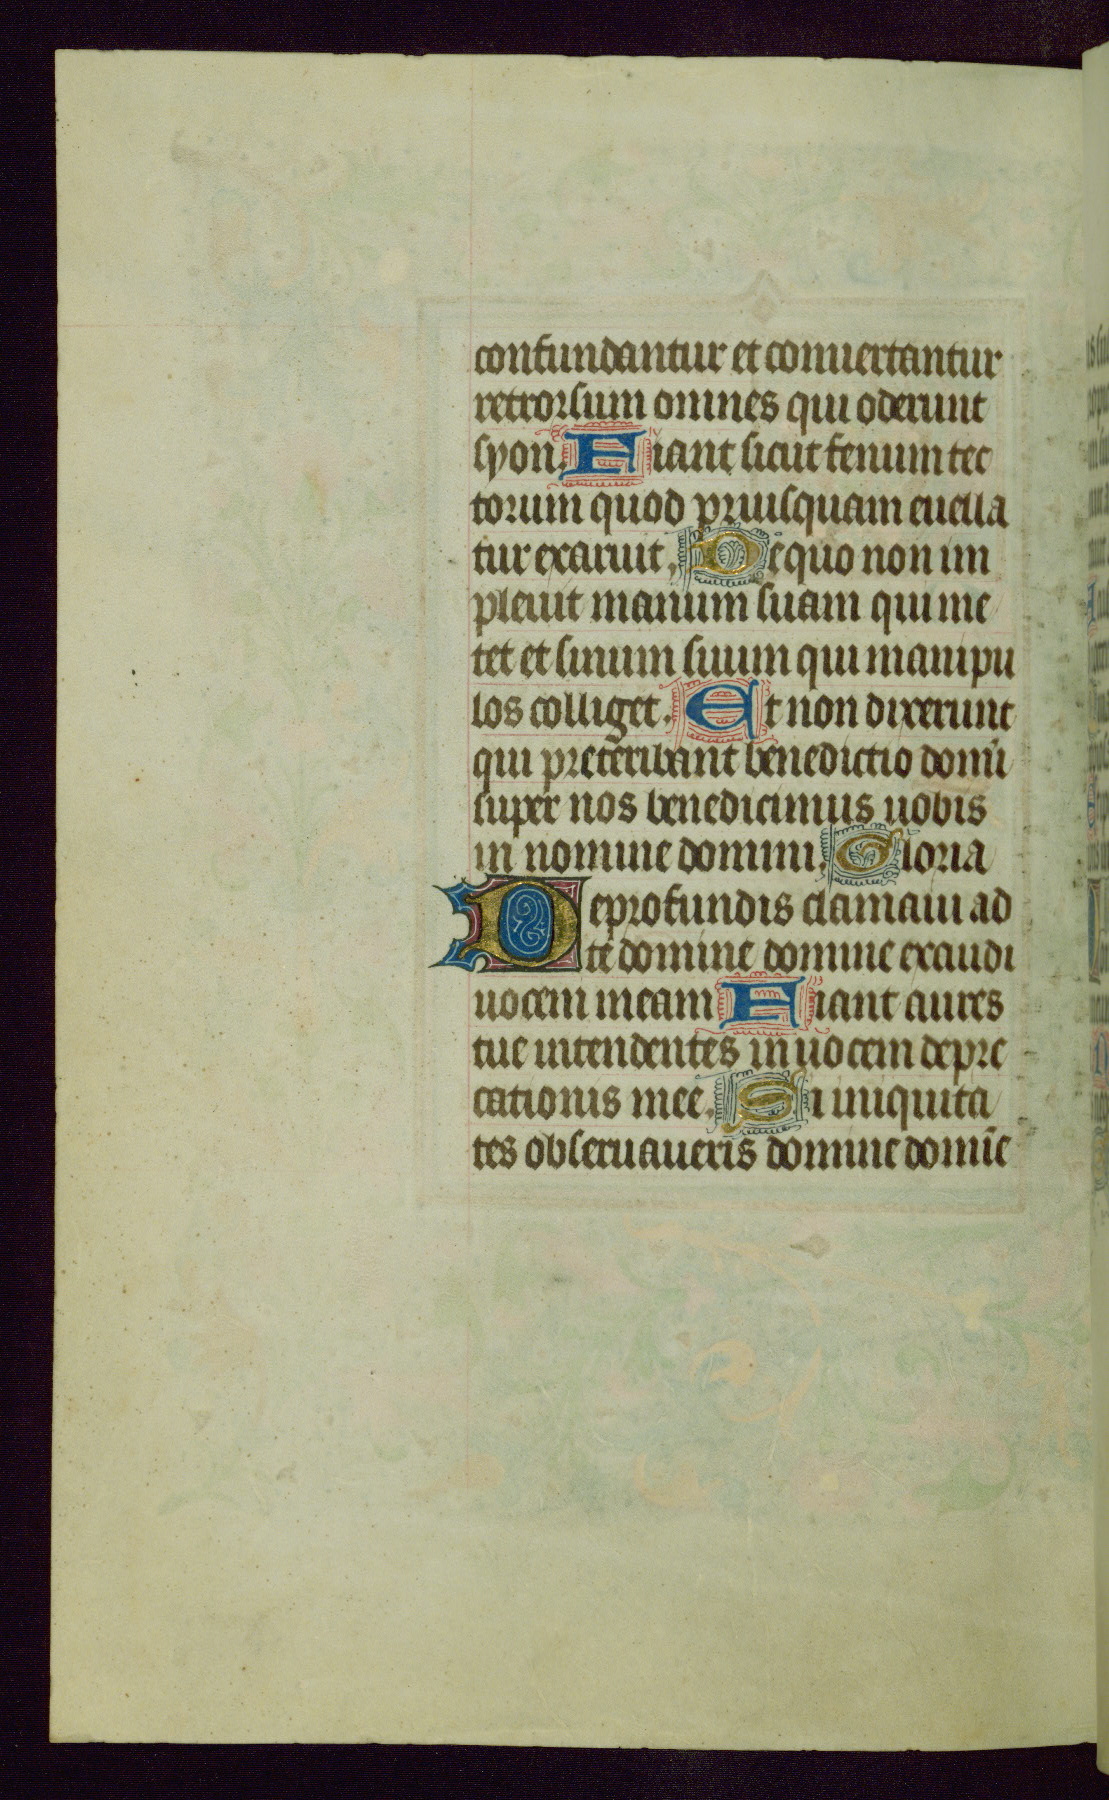 confundantur et conuertantur
retrorsum omnes qui oderunt
syon. Fiant sicut fenum tec
torum quod priusquam euella
tur exaruit. De quo non im
pleuit manum suam qui me
tet et sinum suum qui manipu
los colliget. Et non dixerunt
qui preteribant benedictio domī
super nos benedicimus uobis
in nomine domini. Gloria
De profundis clamaui ad
te domine domine exaudi
uocem meam Fiant aures
tue intendentes in uocem depre
cationis mee. Si iniquita
tes obseruaueris domine domīe